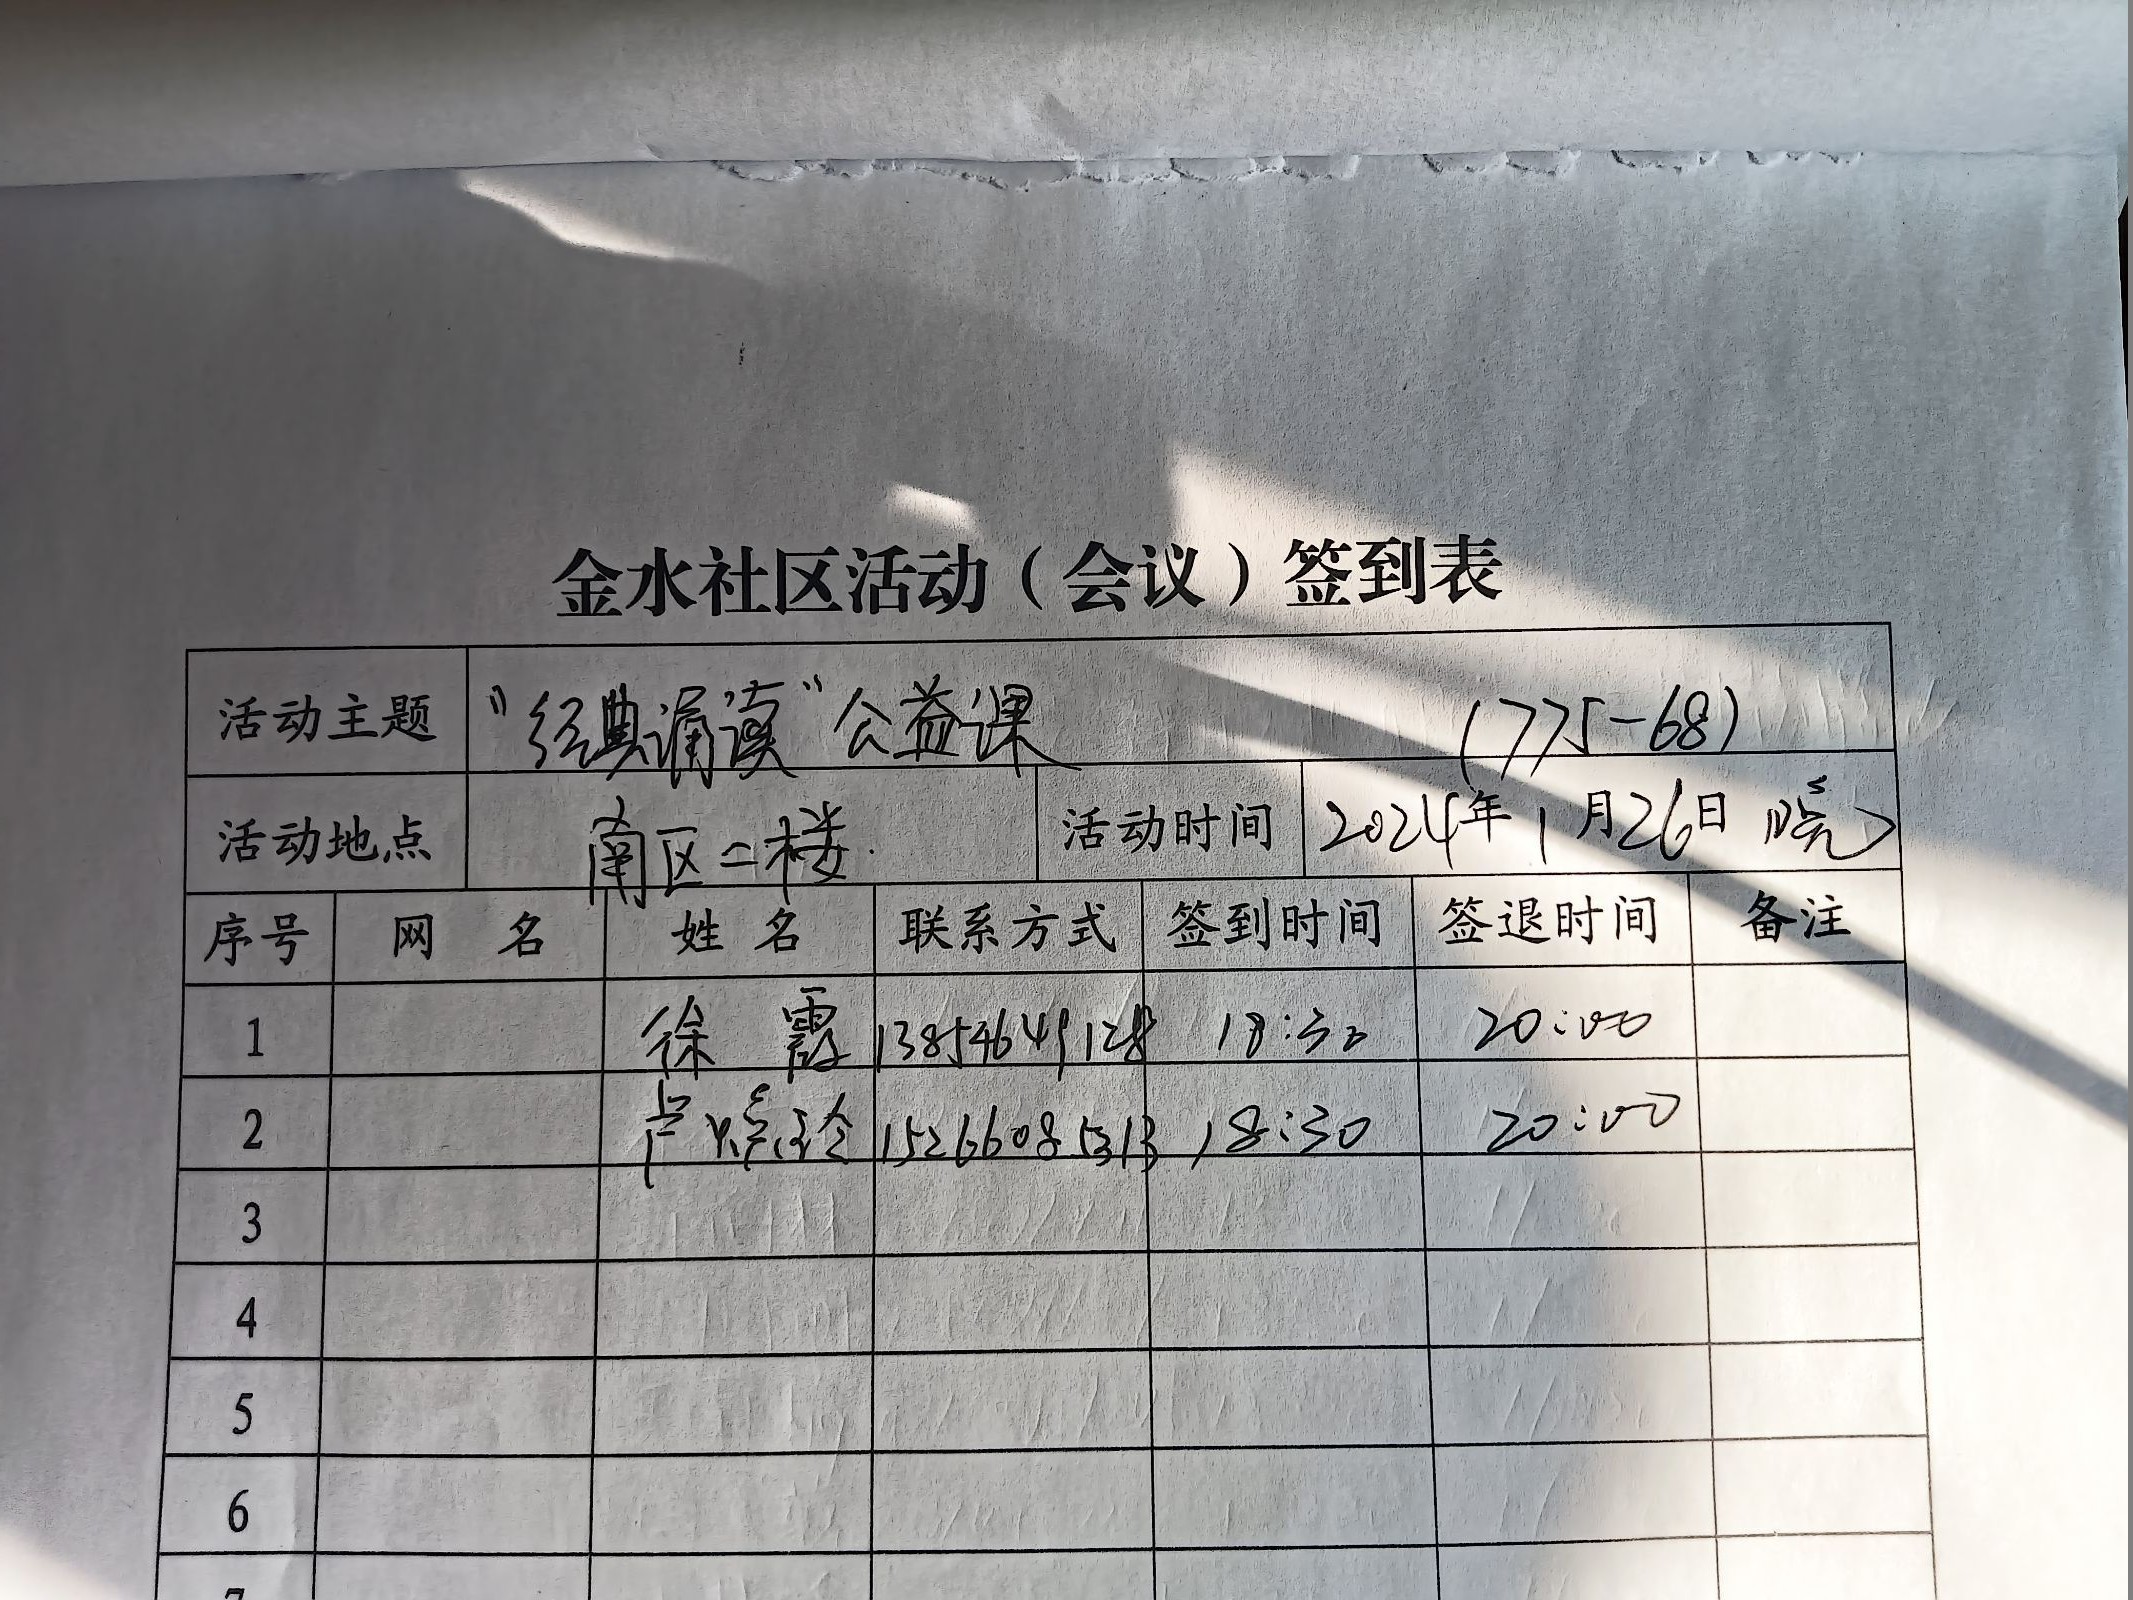 金水社区活动（会议）签到表
活动主题 “经典诵读”公益课 (775-68)
活动地点 南区二楼. 活动时间 2024年1月26日 晚
序号 网 名 姓 名 联系方式 签到时间 签退时间 备注
1 徐 霞 13854649128 18:30 20:00
2 卢 玲 15266085313 18:30 20:00
3
4
5
6
7